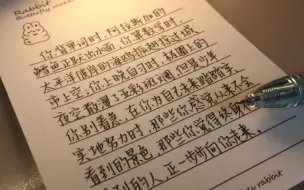 Rabbit
你背单词时，阿拉斯加的
鳕鱼正跃出水面，你算数学时，
太平洋彼岸的海鸥振翅掠过城
市上空，你上晚自习时，极圈上的
夜空散漫了五彩斑斓，但是少年
你别着急，在你为自己未来踏踏实
实地努力时，那些你感觉从来不会
看到的景色，那些你觉得终
的人正一步步向你走来。
rabbit